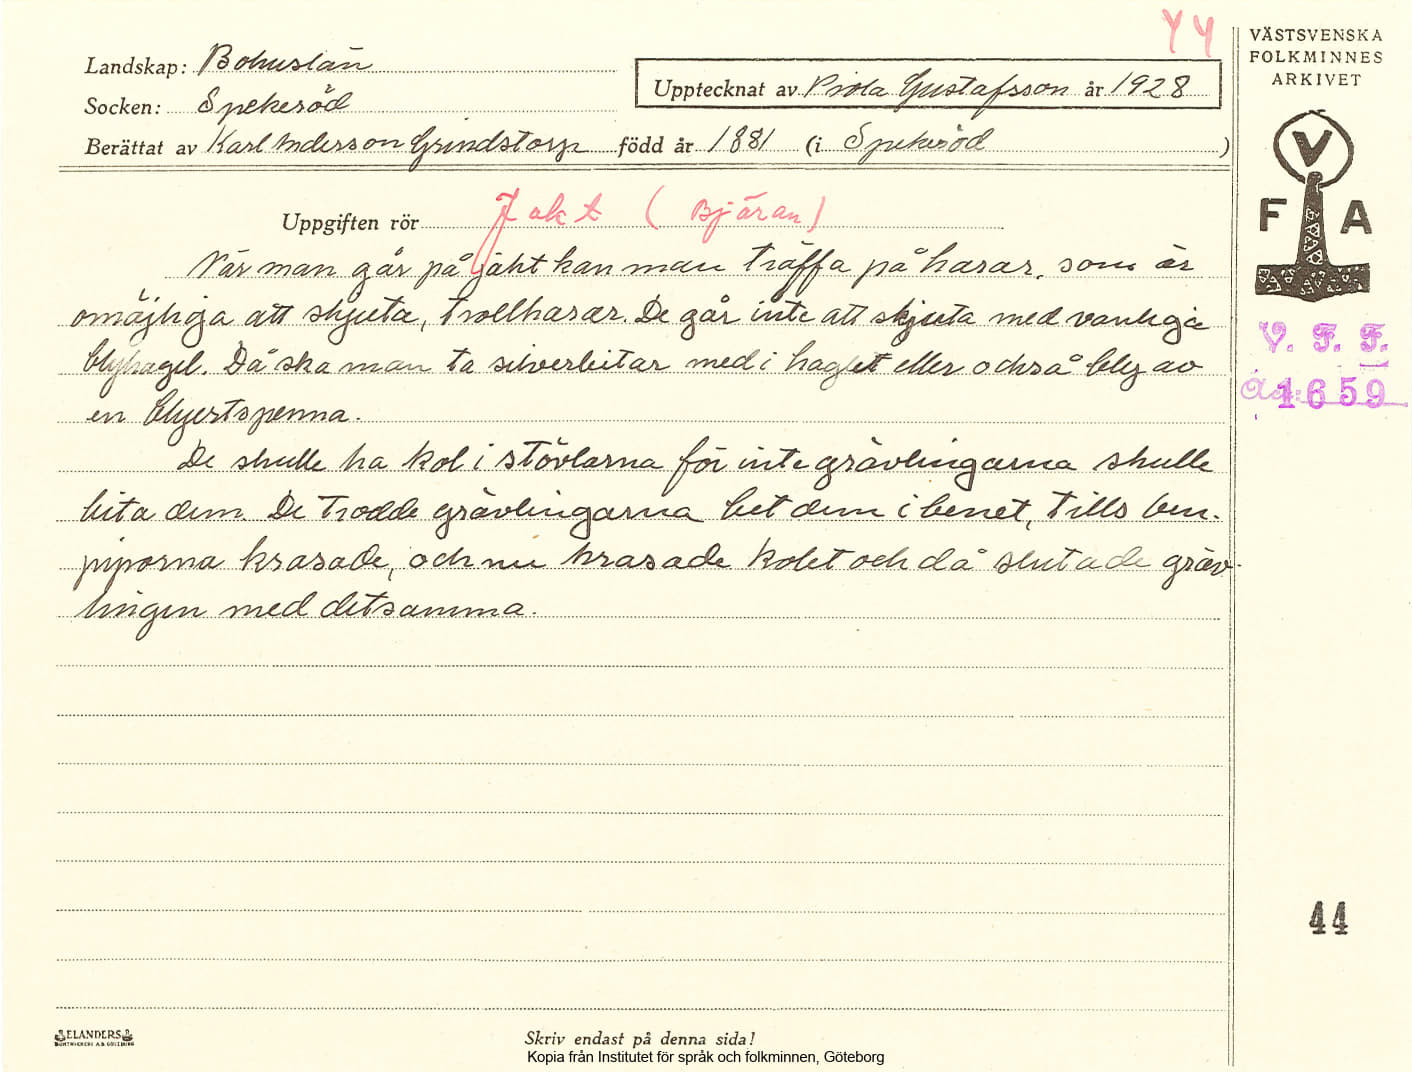 YY
Landskap: Bohuslän
Socken: Spekeröd
Upptecknat av Viola Gustafsson år 1928
Berättat av Karl Anderson Grindstorp född år 1881 (i Spekeröd)
VÄSTSVENSKA
FOLKMINNES
ARKIVET
V
F A
Uppgiften rör Jakt (Bjäran)
När man går på jakt kan man träffa på harar, som är
omöjliga att skjuta, trollharar. De går inte att skjuta med vanliga
blyhagel. Då ska man ta silverbitar med i haglet eller också bly av
en blyertspenna.
De skulle ha kol i stövlarna för inte grävlingarna skulle
bita dem. De trodde grävlingarna bet dem i benet, tills ben-
piporna krasade, och nu krasade kolet och då slutade gräv-
lingen med detsamma.
V. F. F.
Acc: 1659
44
ELANDERS
BOKTRYCKERI A.B. GÖTEBORG
Skriv endast på denna sida!
Kopia från Institutet för språk och folkminnen, Göteborg